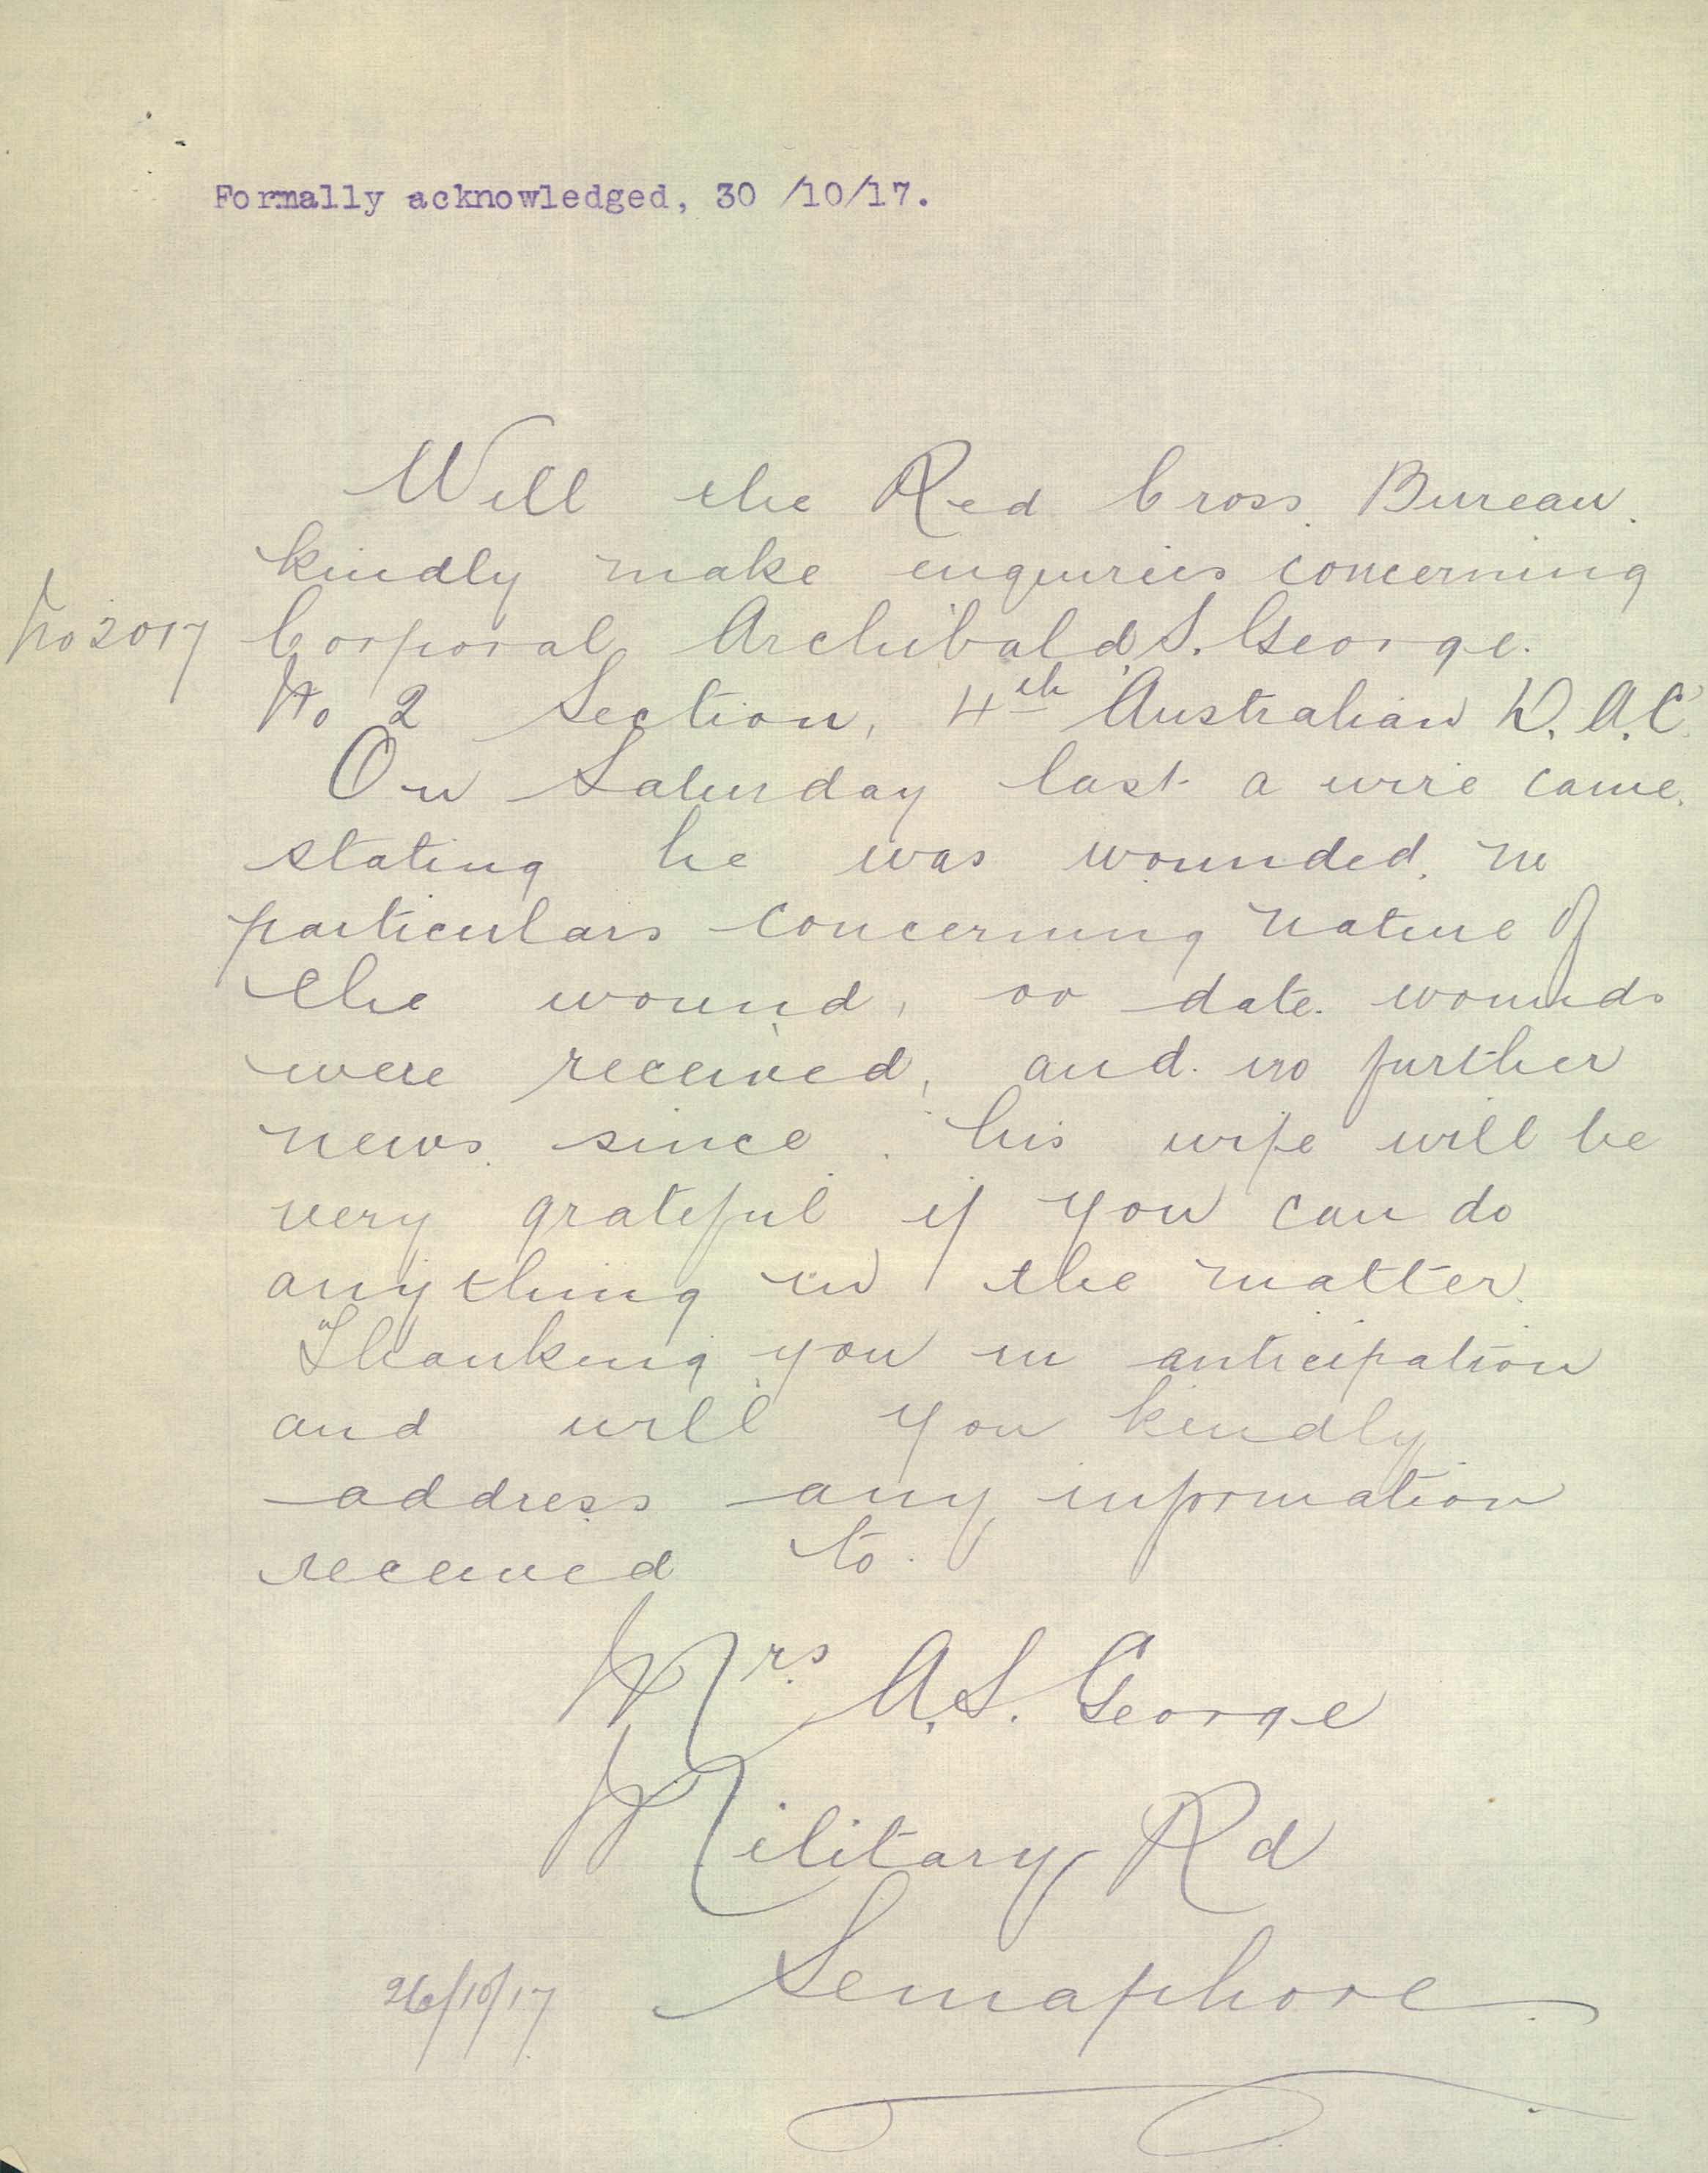 Formally acknowledged, 30 /10/17.
Will the Red Cross Bureau.
kindly make enquiries concerning
No 2017 Corporal Archibald S. George.
No 2 Section, 4th Australian D.A.C.
On Saturday last a wire came.
stating he was wounded, no
particulars concerning nature of
the wound, or date. wounds
were received, and. no further
news. since. his wife will be
very grateful if you can do
anything in the matter.
Thanking you in anticipation
and will you kindly
address any information
received to.
Mrs. A.S. George
Military Rd
Semaphore.
26/10/17